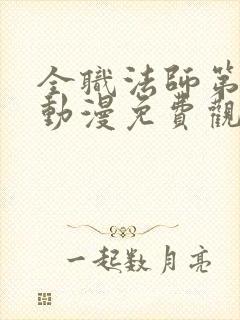 全職法師第
動漫免費觀
一起数月亮